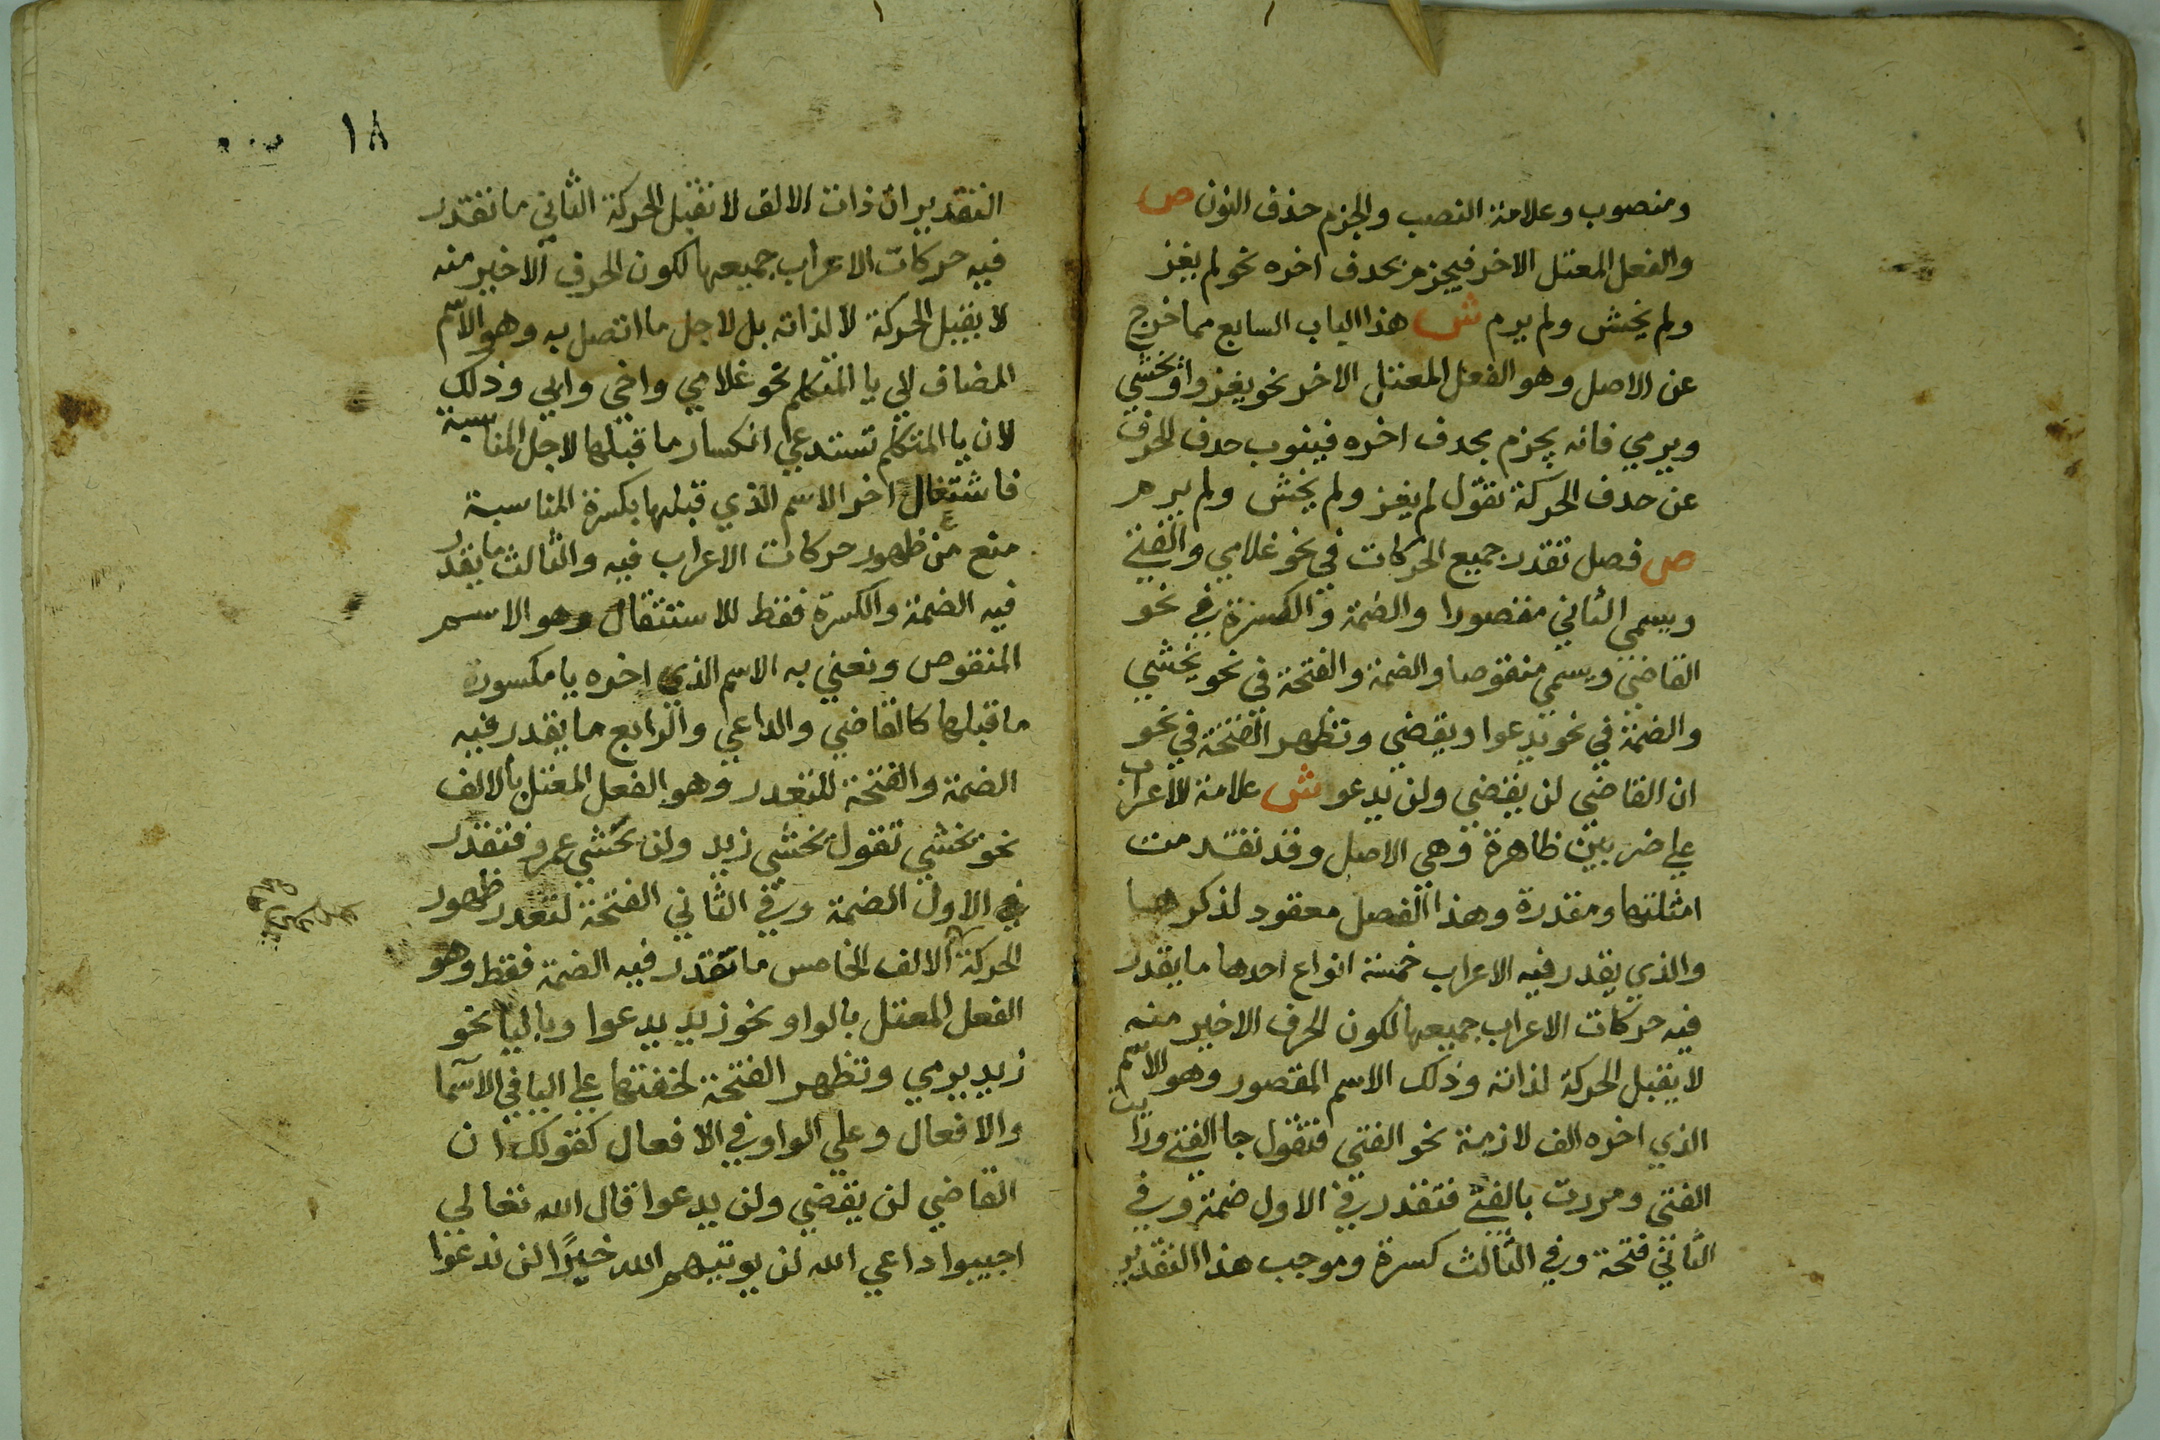 ومنصوب وعلامة النصب والجزم حذف النون ص
والفعل المعتل الاخر فيجزم بحذف اخره نحو لم يغز
ولم يخش ولم يرم ش هذا الباب السابع مما خرج
عن الاصل وهو الفعل المعتل الاخر نحو يغزوا ويخشي
ويرمي فانه يجزم بحدف اخره فينوب حدف الحرف
عن حدف الحركة تقول لم يغز ولم يخش ولم يرم
ص فصل تقدر جميع الحركات في نحو غلامي والفتي
ويسمي الثاني مقصورا والضمة والكسرة في نحو
القاضي ويسمي منقوصا والضمة والفتحة في نحو يخشي
والضمة في نحو يدعوا ويقضي وتظهر الفتحة في نحو
ان القاضي لن يقضي ولن يدعو ش علامة الاعراب
علي ضربين ظاهرة وهي الاصل وقد تقدمت
امثلتها ومقدرة وهذا الفصل معقود لذكرها
والذي يقدر فيه الاعراب خمسة انواع احدها ما يقدر
فيه حركات الاعراب جميعها لكون الحرف الاخير منه
لا يقبل الحركة لذاته وذلك الاسم المقصور وهو الاسم
الذي اخره الف لازمة نحو الفتي فتقول جا الفتي ورايت
الفتي ومررت بالفتي فتقدر في الاول ضمة وفي
الثاني فتحة وفي الثالث كسرة وموجب هذا التقدير
١٨
التقدير ان ذات الالف لا تقبل الحركة الثاني ما تقدر
فيه حركات الاعراب جميعها لكون الحرف الاخير منه
لا يقبل الحركة لا لذاته بل لاجل ما اتصل به وهو الاسم
المضاف لي يا المتكلم نحو غلامي واخي وابي وذلك
لان يا المتكلم تستدعي انكسار ما قبلها لاجل المناسبة
فاشتغال اخر الاسم الذي قبلها بكسرة المناسبة
منع من ظهور حركات الاعراب فيه والثالث ما يقدر
فيه الضمة والكسرة فقط للاستثقال وهو الاسم
المنقوص ونعني به الاسم الذي اخره يا مكسورة
ما قبلها كالقاضي والداعي والرابع ما يقدر فيه
الضمة والفتحة للتعدر وهو الفعل المعتل بالالف
نحو يخشي تقول يخشي زيد ولن يخشي عمرو فتقدر
في الاول الضمة وفي الثاني الفتحة لتعدر ظهور
الحركة الالف الخامس ما تقدر فيه الضمة فقط وهو
الفعل المعتل بالواو نحو زيد يدعوا وباليا نحو
زيد يرمي وتظهر الفتحة لخفتها علي اليا في الاسما
والافعال وعلي الواو في الافعال كقولك ان
القاضي لن يقضي ولن يدعوا قال الله تعالي
اجيبوا داعي الله لن يوتيهم الله خيرًا لن ندعوا